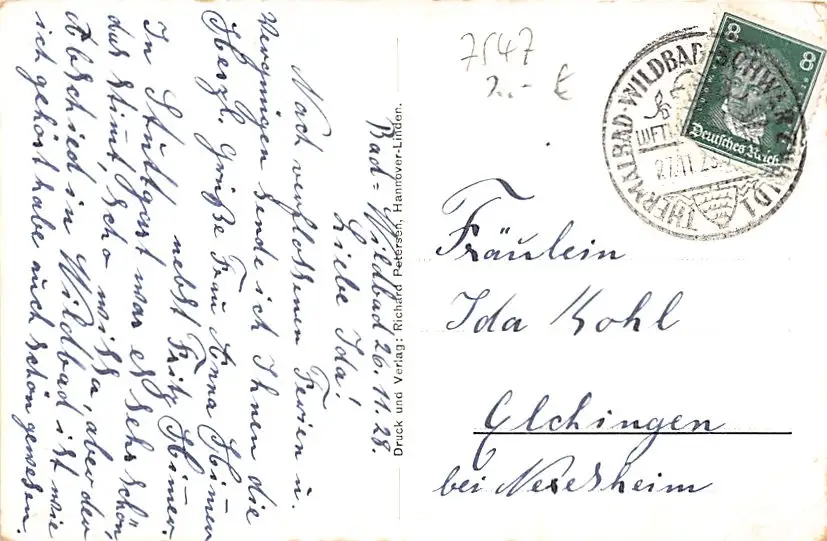 Bad-Wildbad 26.11.28.
Liebe Ida!
Nach verflossenen Ferien u.
Vergnügen sende ich Ihnen die
Herzl. Grüße Frau Anna Himen
nebst Fritz Himer.
In Stuttgart war es sehr schön,
das stimt, scho wissa, aber der
Abschied in Wildbad ist wie
ich gehört habe auch schön gewesen.
Druck und Verlag: Richard Petersen, Hannover-Linden.
7547
8 8
Deutsches Reich
THERMALBAD·WILDBAD·SCHWARZWALD
LUFT
27.11.28
Fräulein
Ida Kohl
Elchingen
bei Neresheim